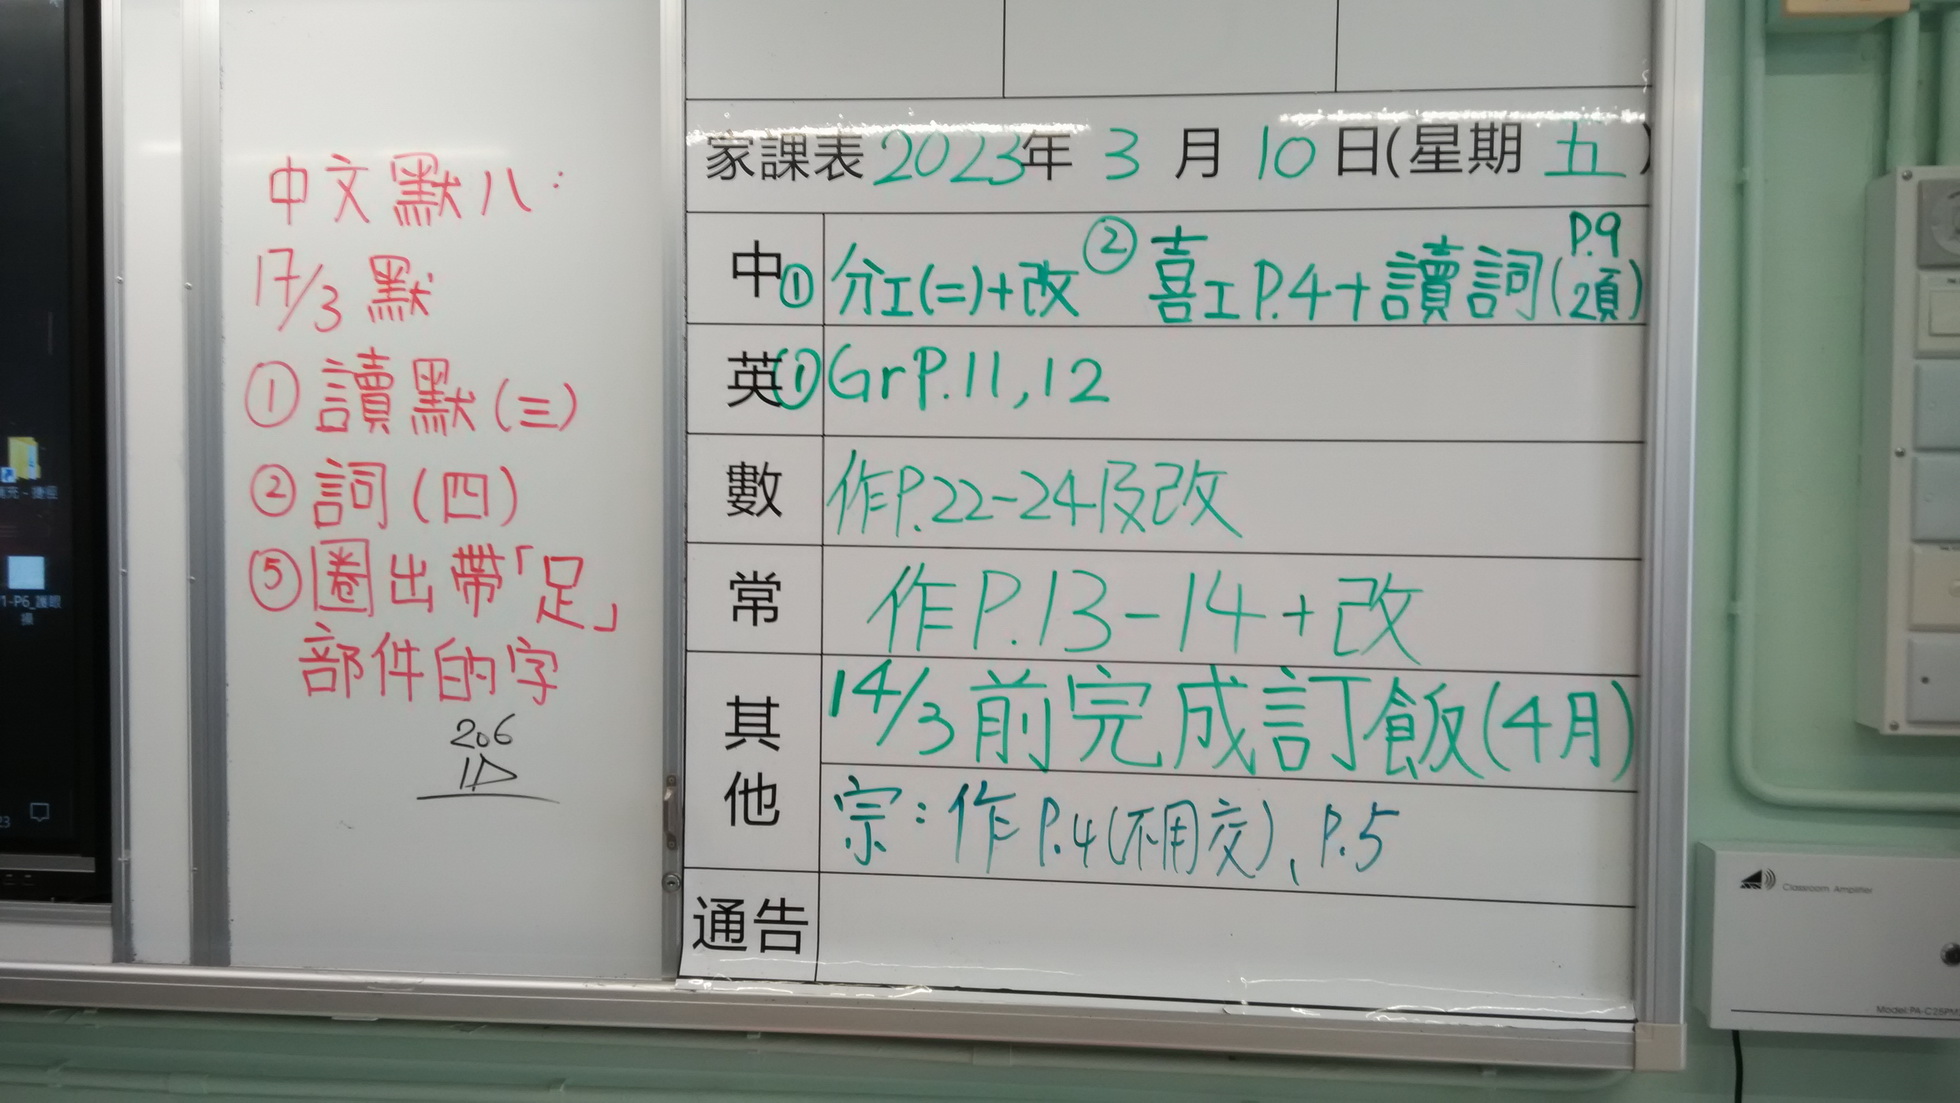 中文默八:
17/3 默
① 讀默(三)
② 詞(四)
⑤ 圈出帶「足」
部件的字
家課表 2023年 3 月 10 日(星期 五 )
中 ① 分工(二)+改 ② 喜工P.4+讀詞(P.9 2項)
英 ① Gr P.11,12
數 作P.22-24及改
常 作P.13-14+改
其他 14/3前完成訂飯(4月)
宗:作P.4(不用交)、P.5
通告
Classroom Amplifier